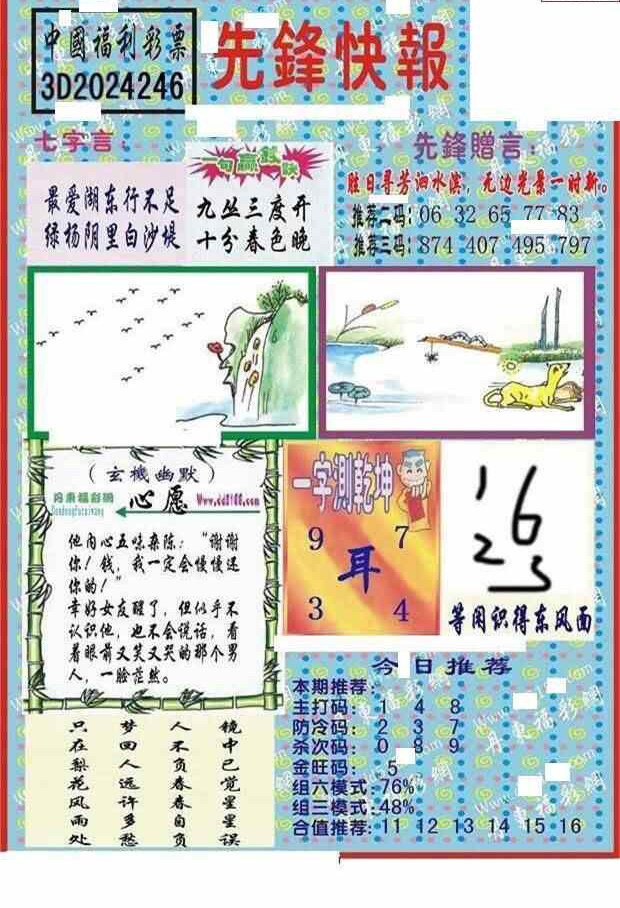 中國福利彩票
3D2024246
先鋒快報
七字言：
最爱湖东行不足
绿杨阴里白沙堤
一句赢钱诀
九丛三度开
十分春色晚
先鋒贈言：
胜日寻芳泗水滨，无边光景一时新。
推荐二码：06 32 65 77 83
推荐三码：874 407 495 797
（玄機幽默）
丹東福彩網
Dandongfucaiwang
心愿
Www.dd8188.com
他内心五味杂陈：“谢谢
你！钱，我一定会慢慢还
你的！”
幸好女友醒了，但似乎不
认识他，也不会说话，看
着眼前又笑又哭的那个男
人，一脸茫然。
一字測乾坤
9 7
耳
3 4
1 6
2 5
等闲识得东风面
只 梦 人 镜
在 回 不 中
梨 人 负 已
花 远 春 觉
风 许 春 星
雨 多 自 星
处 愁 负 误
今日推荐
本期推荐：
主打码： 1 4 8
防冷码： 2 3 7
杀次码： 0 8 9
金旺码： 5
组六模式：76%
组三模式：48%
合值推荐：11 12 13 14 15 16